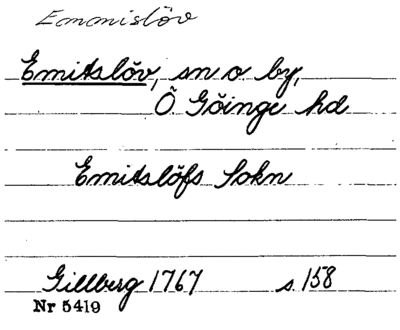 Emmislöv
Emitslöv, sn o by,
Ö. Göinge hd
Emitslöfs Sokn
Gillberg 1767 s 158
Nr 5419